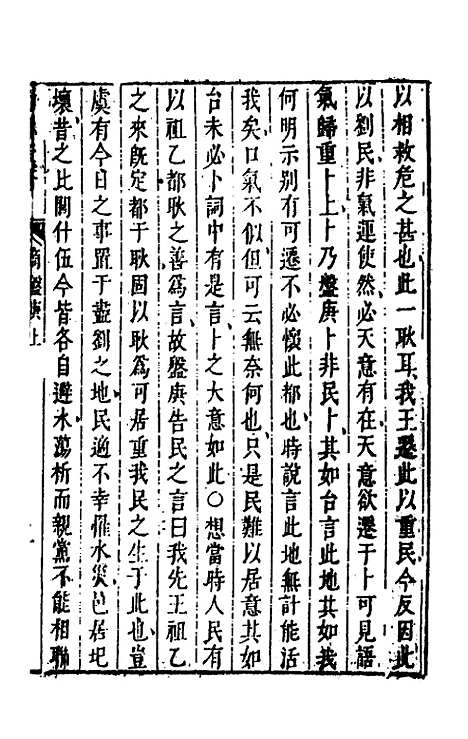 以相救危之甚也此一耿耳我王遷此以重民今反因此
以劉民非氣運使然必天意有在天意欲遷于卜可見語
氣歸重卜上卜乃盤庚卜非民卜其如台言此地其如我
何明示别有可遷不必懷此都也時說言此地無計能活
我矣口氣不似但可云無奈何也只是民難以居意其如
台未必卜詞中有是言卜之大意如此○想當時人民有
以祖乙都耿之善爲言故盤庚告民之言曰我先王祖乙
之來既定都于耿固以耿爲可居重我民之生于此也豈
虞有今日之事置于盡劉之地民適不幸罹水災邑居圯
壞昔之比閭什伍今皆各自避水蕩析而親黨不能相聯
商盤庚上